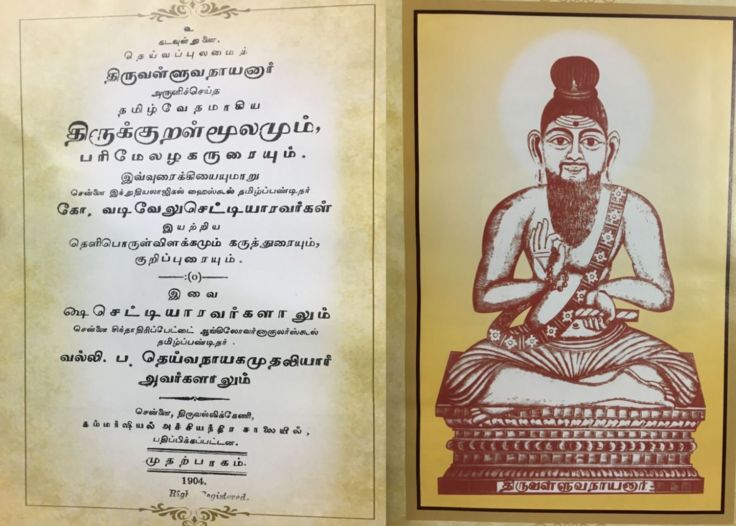 உ
கடவுள் துணை.
தெய்வப்புலமைத்
திருவள்ளுவநாயனார்
அருளிச்செய்த
தமிழ்வேதமாகிய
திருக்குறள்மூலமும்,
பரிமேலழகருரையும்.
இவ்வுரைக்கியையுமாறு
சென்னை இக்நியலாஜிகல் ஹைஸ்கூல் தமிழ்ப்பண்டிதர்
கோ. வடிவேலுசெட்டியாரவர்கள்
இயற்றிய
தெளிபொருள்விளக்கமும் கருத்துரையும்,
குறிப்புரையும்.
—:(o)—
இவை
ஷை செட்டியாரவர்களாலும்
சென்னை சிந்தாதிரிப்பேட்டை ஆங்கிலோவர்னாகுலர்ஸ்கூல்
தமிழ்ப்பண்டிதர்
வல்லி. ப. தெய்வநாயகமுதலியார்
அவர்களாலும்
சென்னை, திருவல்லிக்கேணி,
கம்மர்ஷியல் அச்சியந்திர சாலையில்,
பதிப்பிக்கப்பட்டன.
முதற்பாகம்.
1904.
Registered.
திருவள்ளுவநாயனார்